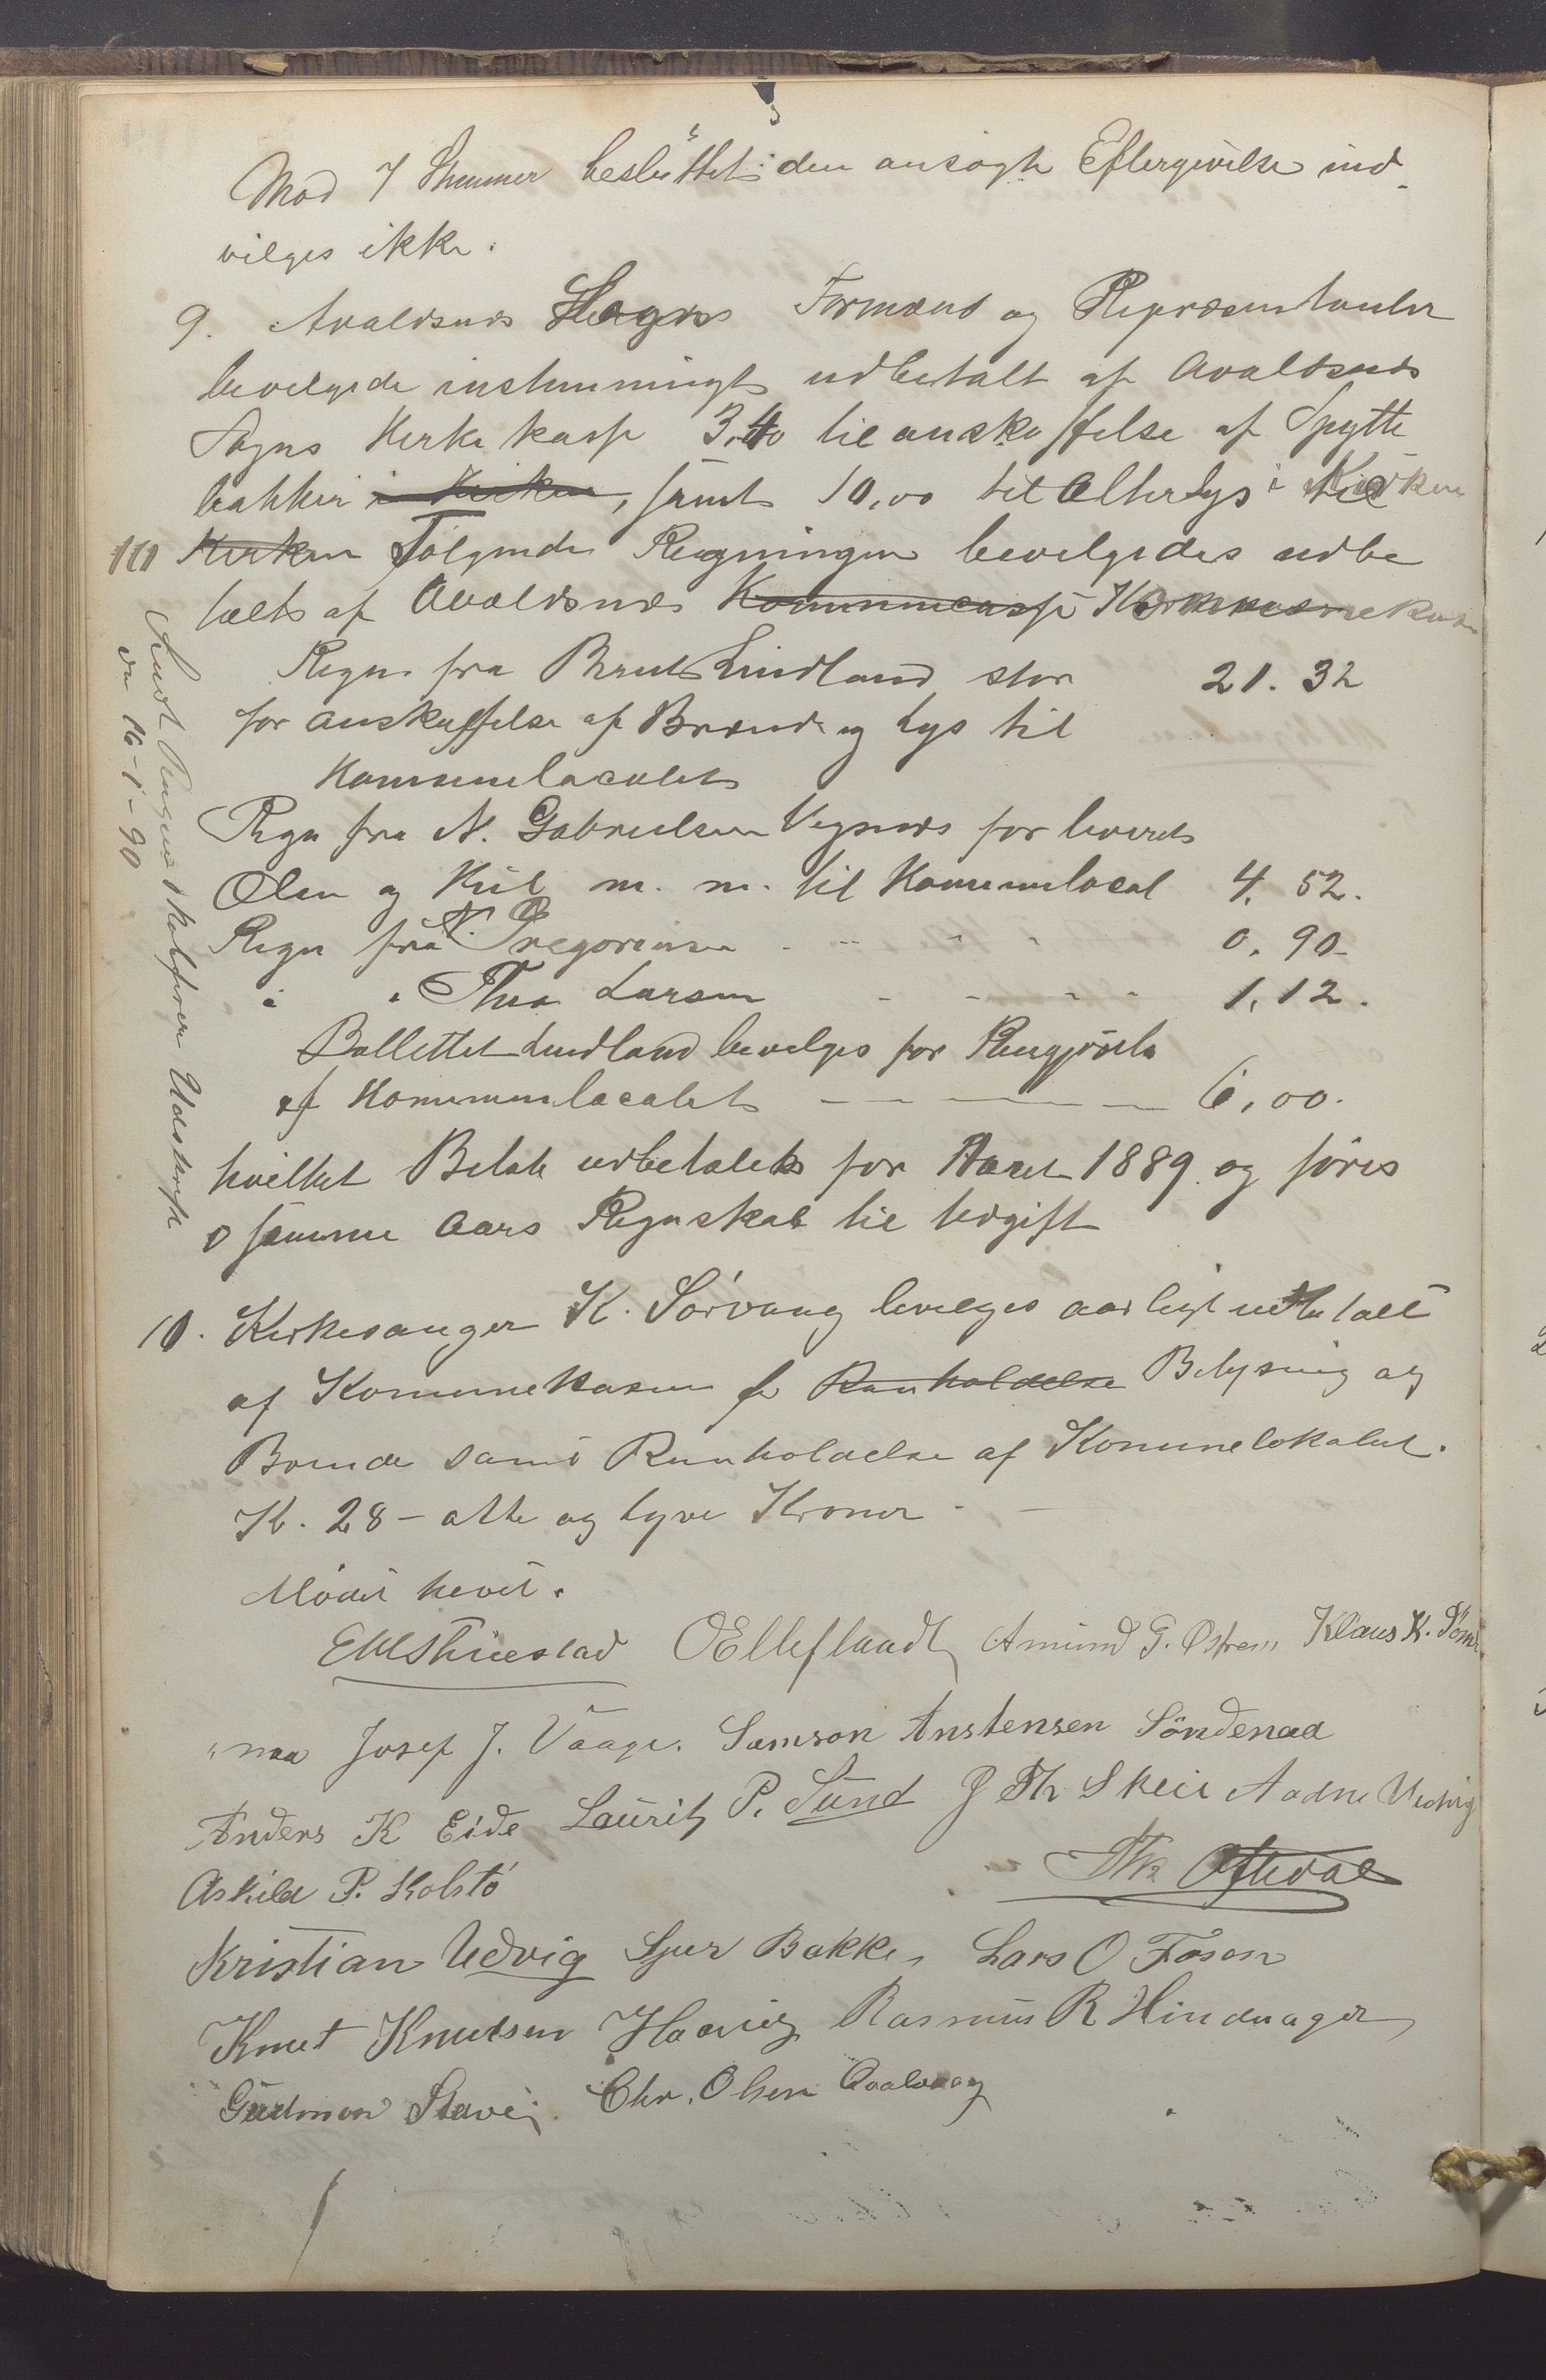 Mod 7 Stemmer besluttet: den ansøgte Eftergivelse ind-
vilges ikke.
9. Avaldsnes Sogns Formænd og Repræsentanter
bevilgede enstemmigt udbetalt af Avaldsnes
Sogns Kirkekasse 3,40 til anskaffelse af Spytte
bakker i Kirken, samt 10,00 til Alterlys i Kirken
10 Kirken Følgende Regninger bevilgedes udbe
talt af Avaldsnes Kommunecasse Kommunekasse
Regn. fra Berent Lindland stor 21. 32
for anskaffelse af Brænde og Lys til
Kommunelocalet
Regn fra N. Gabrielsen Vignæs for leveret
Olen og Kul m. m. til Kommunelocal 4. 52.
Regn fra N. Gregoriusen 0. 90
" " Thea Larsen 1, 12.
Lindland bevilges for Rengjørelse
af Kommunelocalet 6,00.
hvilket Beløb udbetales for Aaret 1889 og føres
i samme Aars Regnskab til Udgift
Sendt Regnskabsfører Udskrift
den 16-1-90
10. Kirkesanger K. Sørvaag bevilges aarligt udbetalt
af Kommunekassen for Renholdelse Belysning og
Brænde samt Renholdelse af Kommunelokalet.
Kr. 28 - otte og tyve Kroner -
Mødet hævet.
OElleflaadt Amund G. Østrem Klaus K. Sönde
naa Josef J. Vaage. Samson Anstensen Søndenaa
Anders K Eide Lauritz P. Sund J Th Skeie Aadne Utvig
Askild P. Kolstø Th Oftedal
Kristian Udvig Sjur Bakke, Lars O Fosen
Knut Knutsen Haavig Rasmus R Hindenager
Gudmon Stave Chr. Olsen Qvalevaag